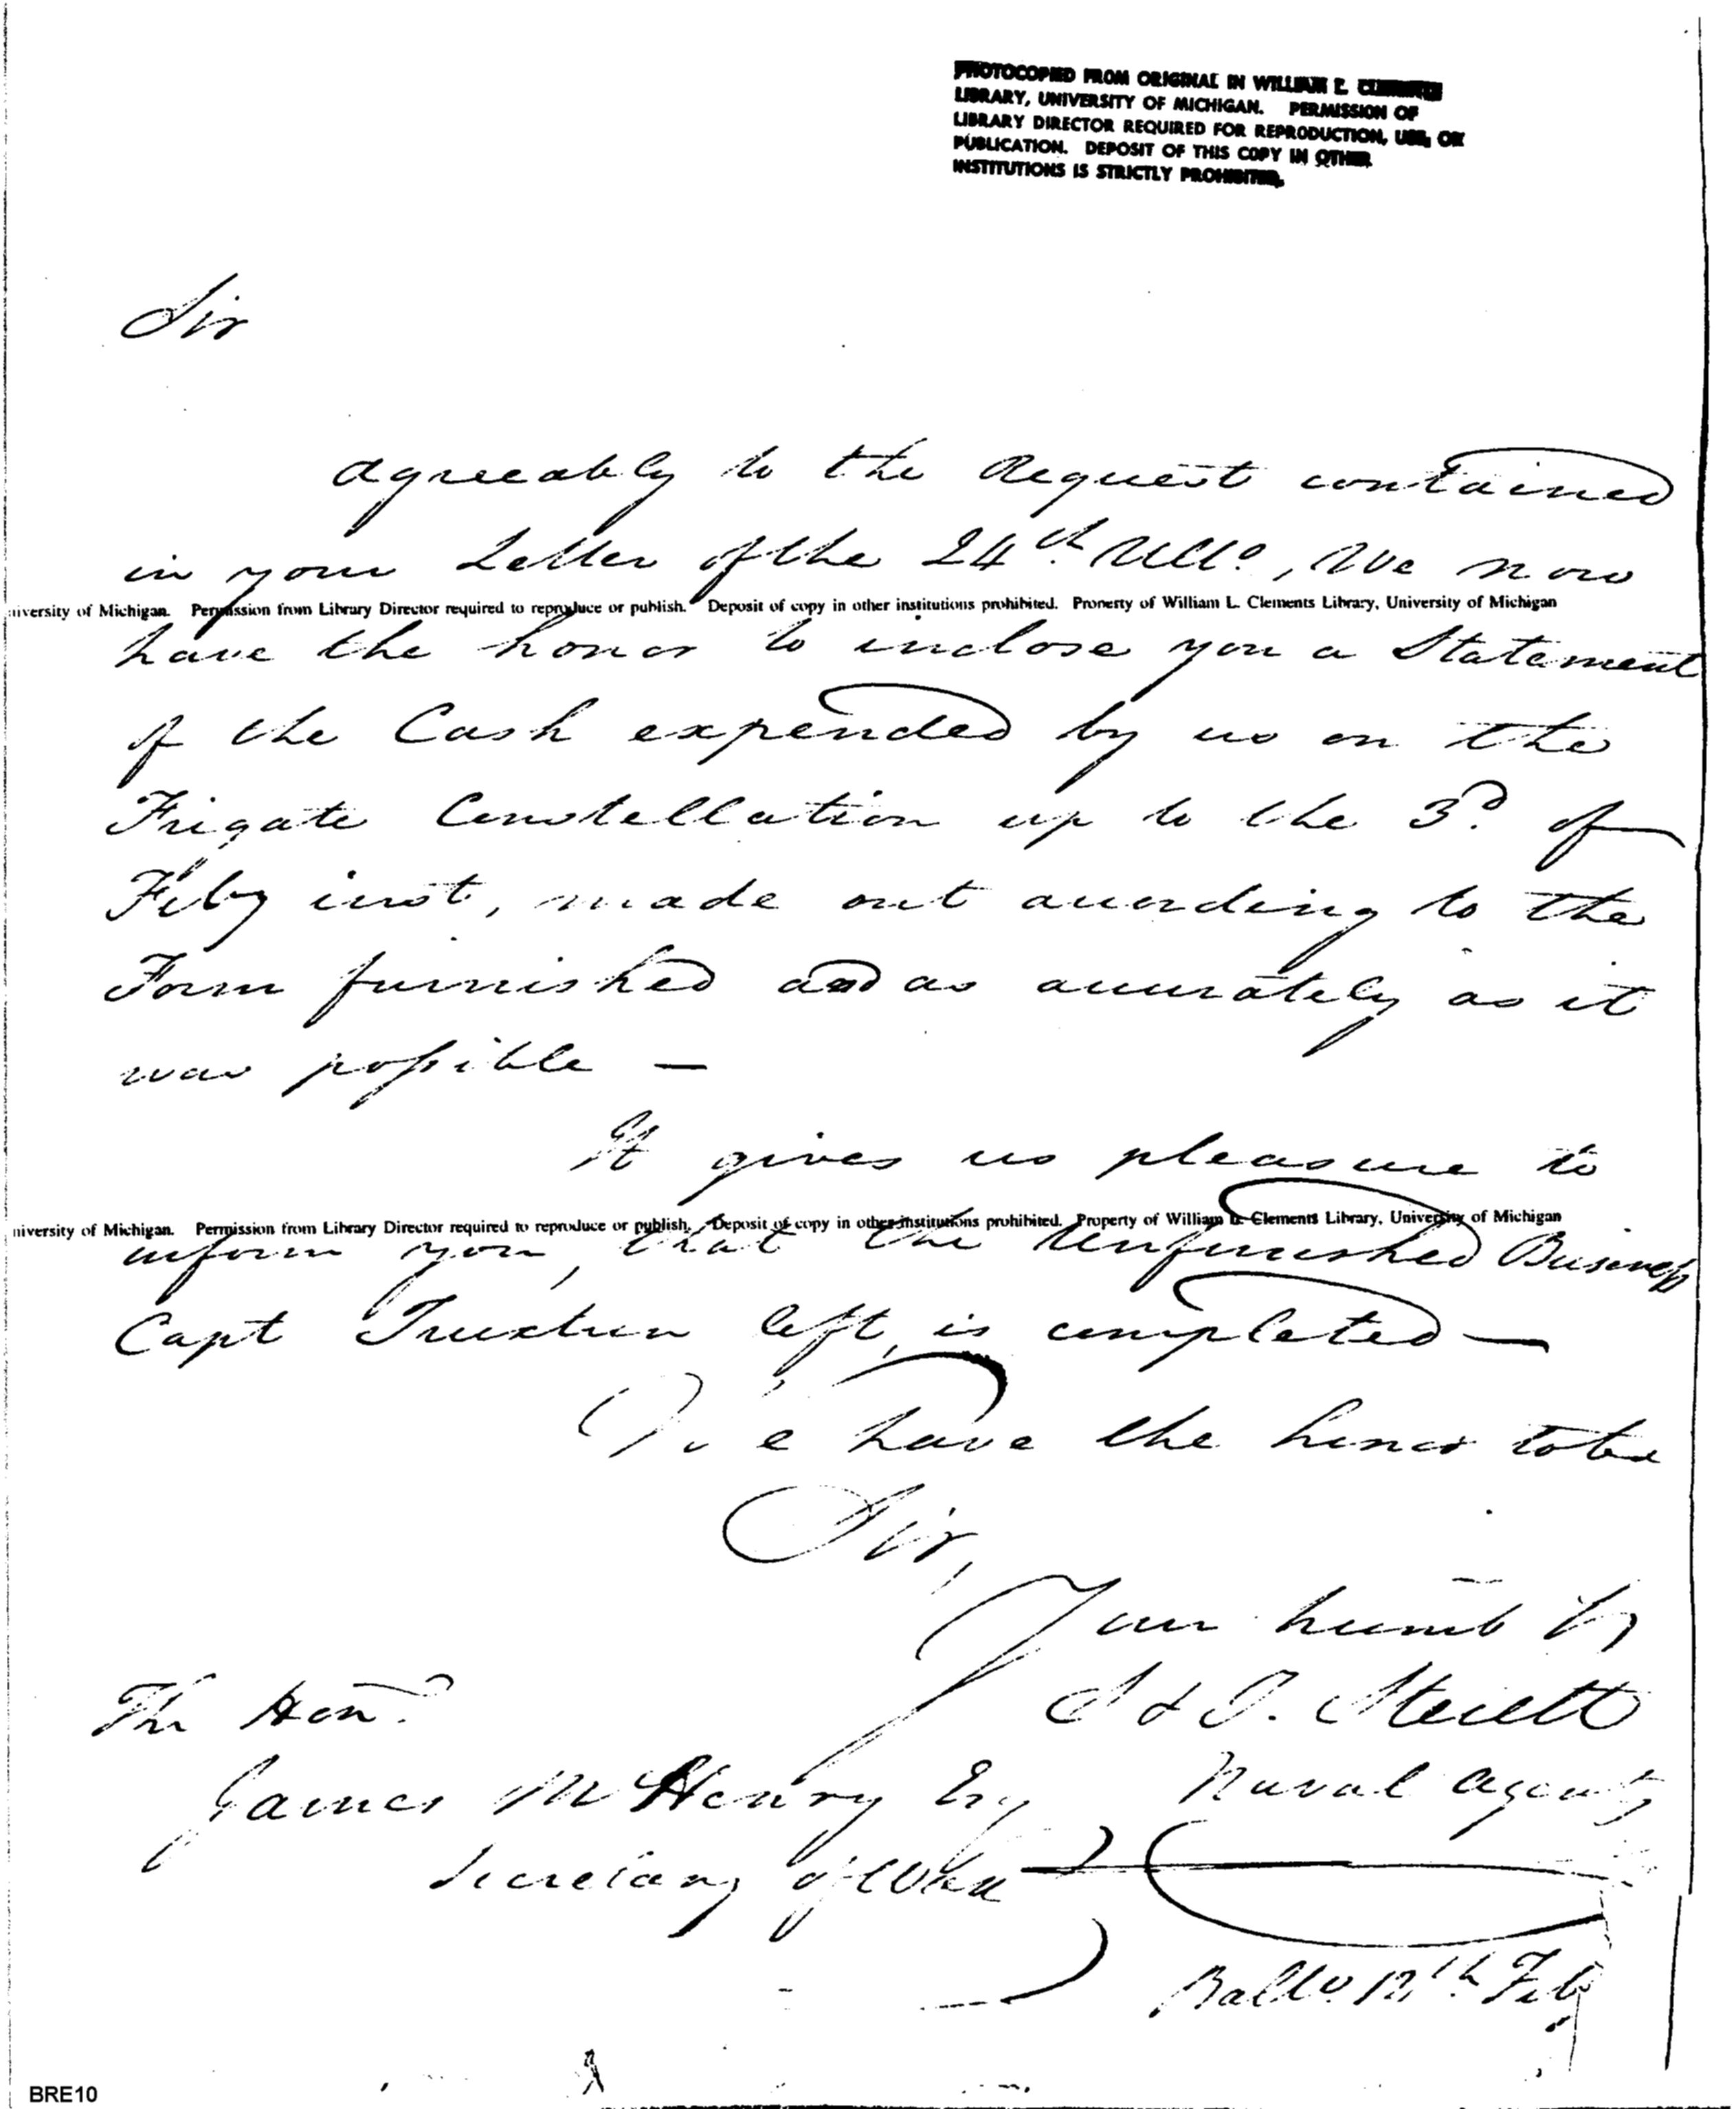 PHOTOCOPIED FROM ORIGINAL IN WILLIAM L. CLEMENTS
LIBRARY, UNIVERSITY OF MICHIGAN. PERMISSION OF
LIBRARY DIRECTOR REQUIRED FOR REPRODUCTION, USE, OR
PUBLICATION. DEPOSIT OF THIS COPY IN OTHER
INSTITUTIONS IS STRICTLY PROHIBITED.
Sir
agreeably to the Request contained
in your Letter of the 24th Ullo, We now
niversity of Michigan. Permission from Library Director required to reproduce or publish. Deposit of copy in other institutions prohibited. Property of William L. Clements Library, University of Michigan
have the honor to inclose you a Statement
of the Cash expended by us on the
Frigate Constellation up to the 3d of
Feby inst, made out according to the
Form furnished and as accurately as it
was possible —
It gives us pleasure to
niversity of Michigan. Permission from Library Director required to reproduce or publish. Deposit of copy in other institutions prohibited. Property of William L. Clements Library, University of Michigan
inform you, that the Unfinished Business
Capt Truxtun left, is completed —
We have the honor to be
Sir,
Your humb
The Honl
S & J. Sterett
James McHenry Esq
Naval Agents
Secretary of War
Balto 12th Feb
BRE10